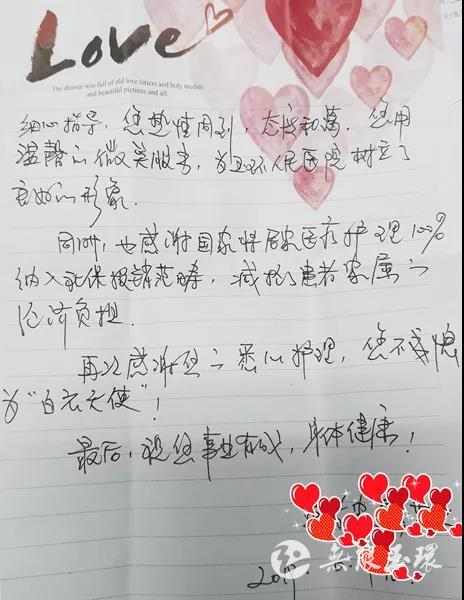 Love
The drawer was full of old love letters and holy medals
and beautiful pictures and all.
细心指导，您热情周到，态度和蔼，您用
温馨的微笑服务，为玉环人民医院树立了
良好的形象．
同时，也感谢国家将居家医疗护理100%
纳入社保报销范畴，减轻了患者家属的
经济负担．
再次感谢您的悉心护理，您不愧
为“白衣天使”！
最后，祝您事业有成，身体健康！
无限玉環